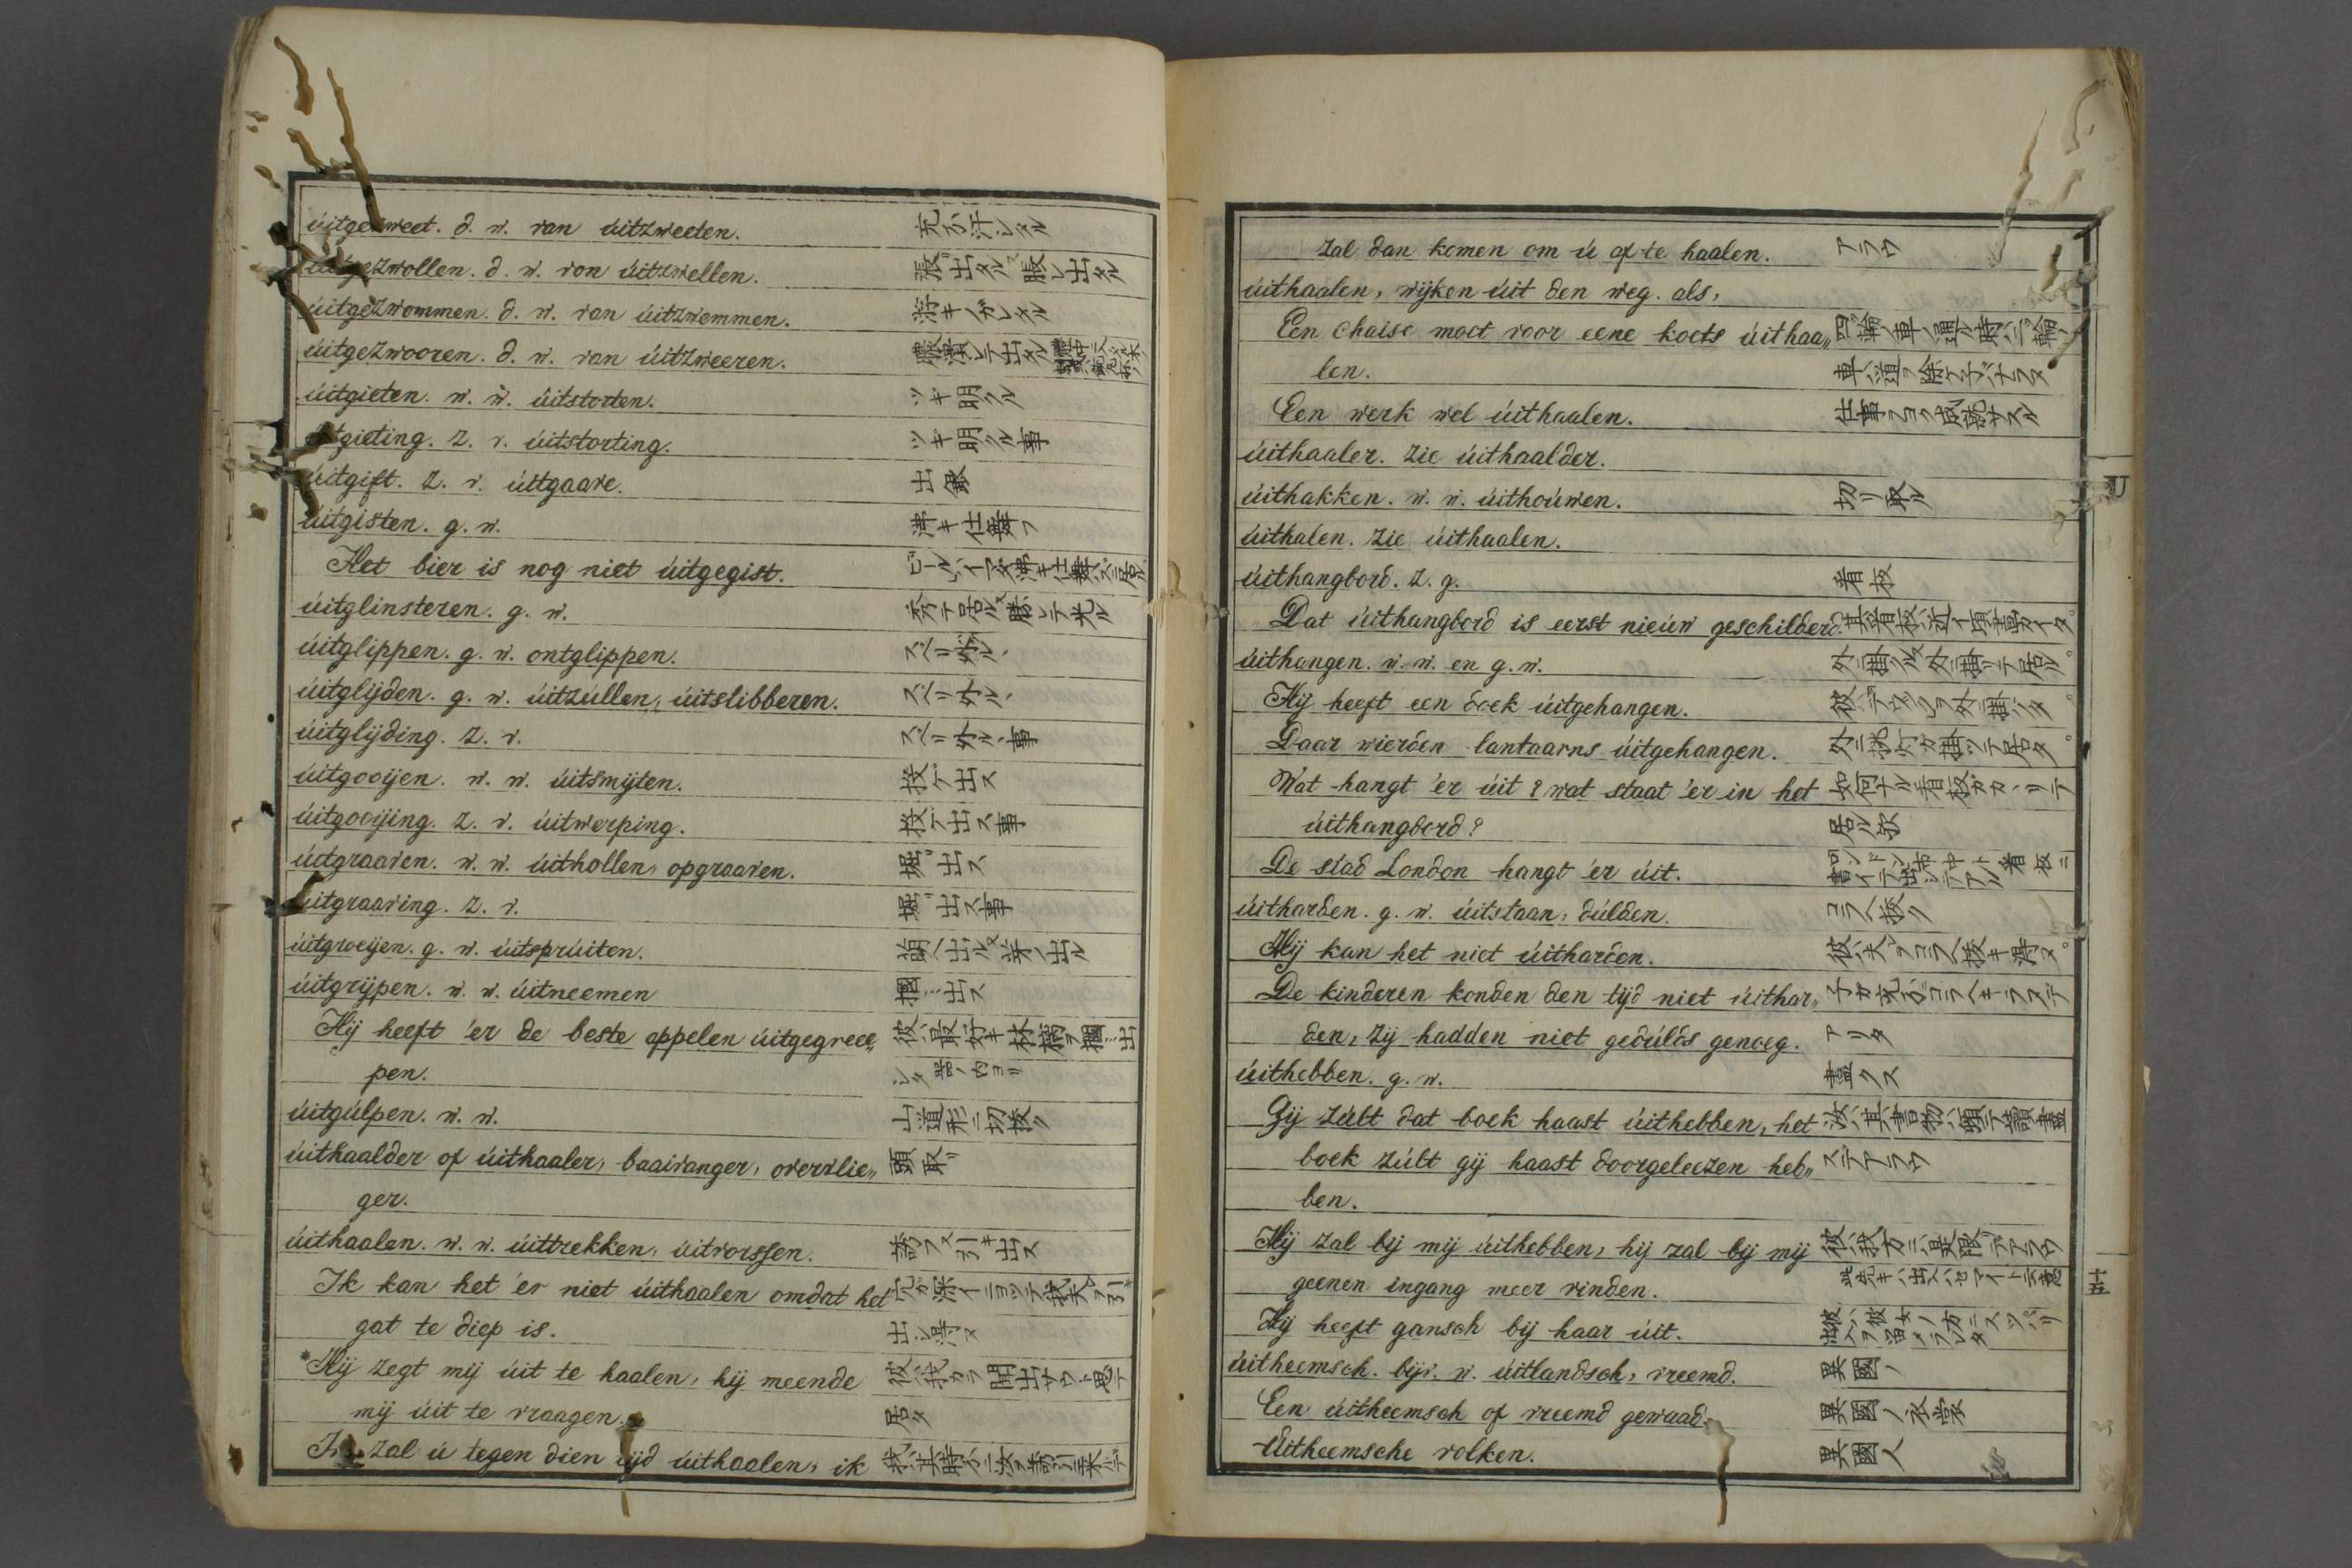 úitgezweet. d. w. van úitzweeten.
úitgezwollen. d. w. van úitzwellen. 張出タル 脹レ出タル
úitgezwommen. d. w. van úitzwemmen.
úitgezwooren. d. w. van úitzweeren.
úitgieten. w. w. úitstorten. ツギ明クル
úitgieting. z. v. úitstorting. ツギ明クル事
úitgift. z. v. úitgaave. 出銀
úitgisten. g. w. 沸キ仕舞フ
Het bier is nog niet úitgegist.
úitglinsteren. g. w.
úitglippen. g. w. ontglippen. スベリ外ル
úitglijden. g. w. úitzúllen, úitslibberen. スベリ外ル
úitglijding. z. v. スベリ外ル事
úitgooijen. w. w. úitsmijten. 投ゲ出ス
úitgooijing. z. v. úitwerping. 投ゲ出ス事
úitgraaven. w. w. úithollen, opgraaven. 掘出ス
úitgraaving. z. v. 掘出ス事
úitgroeijen. g. w. úitsprúiten.
úitgrijpen. w. w. úitneemen 掴ミ出ス
Hij heeft 'er de beste appelen úitgegree„ 彼ハ最好キ林檎ヲ掴ミ出
pen.
úitgúlpen. w. w. 山道形ニ切抜ク
úithaalder of úithaaler, baaivanger, overvlie„ 頭取
ger.
úithaalen. w. w. úittrekken, úitvorssen. 誘フ 引キ出ス
Ik kan het 'er niet úithaalen omdat het 穴ガ深イニヨッテ我夫ヲ引キ
gat te diep is. 出シ得ヌ
*Hij zegt mij úit te haalen, hij meende
mij úit te vraagen. 居タ
Ik zal ú tegen dien tijd úithaalen, ik
zal dan komen om ú af te haalen. アラウ
úithaalen, wijken úit den weg. als,
Een chaise moet voor eene koets úithaa„ 四輪ノ車ノ通ル時ハ二輪ノ
len. 車ハ道ヲ除ケネバナラヌ
Een werk wel úithaalen. 仕事ヲヨク成就サスル
úithaaler. zie úithaalder.
úithakken. w. w. úithoúwen. 切リ取ル
úithalen. zie úithaalen.
úithangbord. z. g. 看板
Dat úithangbord is eerst nieúw geschilderd. 其看板ハ近イ頃畫イタ
úithangen. w. w. en g. w. 外ニ掛クル 外ニ掛ツテ居ル
Hij heeft een doek úitgehangen.
Daar wierden lantaarns úitgehangen. 外ニ挑灯ガ掛ツテ居タ
Wat hangt 'er úit? wat staat 'er in het 如何ナル看板ガカヽリテ
úithangbord? 居ル歟
De stad London hangt 'er úit.
úitharden. g. w. úitstaan, dúlden. コラヘ抜ク
Hij kan het niet úitharden. 彼ハ夫ヲコラヘ抜キ得ヌ
De kinderen konden den tijd niet úithar„
den, zij hadden niet gedúlds genoeg. アリタ
úithebben. g. w. 盡クス
Gij zúlt dat boek haast úithebben, het 汝ハ其書物ハ頓テ讀盡
boek zúlt gij haast doorgeleezen heb„ ステアラウ
ben.
Hij zal bij mij úithebben, hij zal bij mij
geenen ingang meer vinden.
Hij heeft gansch bij haar úit.
úitheemsch. bijv. w. úitlandsch, vreemd. 異國ノ
Een úitheemsch of vreemd gewaad. 異國ノ衣裳
Uitheemsche volken. 異國人
U